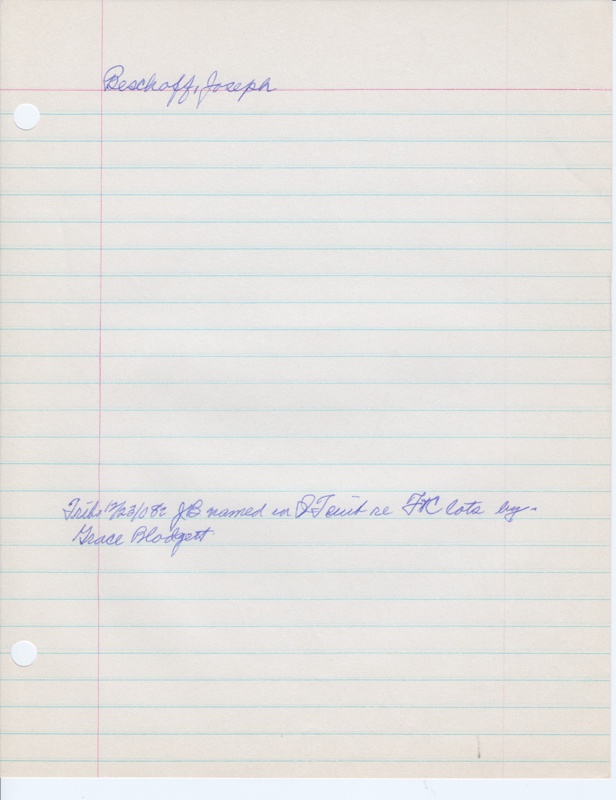 Beschoff, Joseph
Trib. 12/23/08: JB named in QT suit re FtC lots by
Grace Blodgett